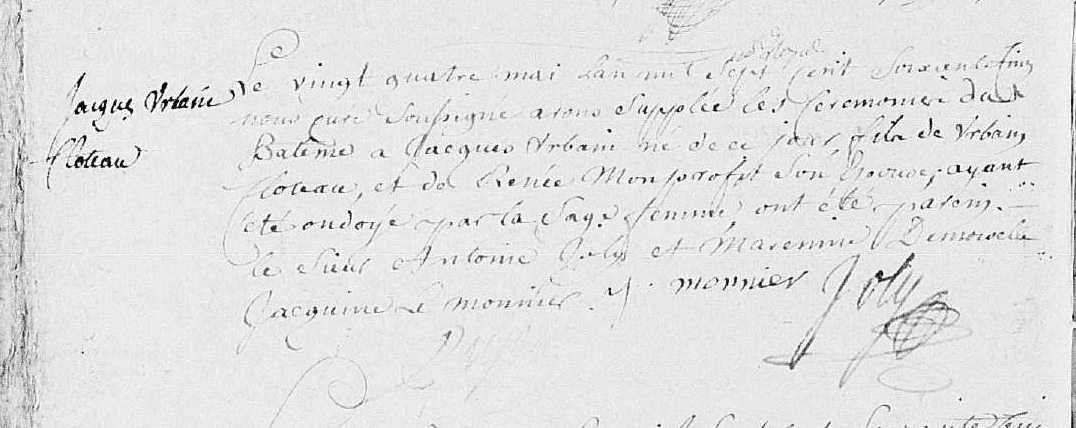 Jacques Urbain
Cloteau
Le vingt quatre mai Lan mil Sept cent Soixante Cinq
nous curé Soussigné avons Supplée les Ceremonies du
Batême a Jacques Urbain né de ce jour fils de Urbain
Cloteau, et de Renée Monsprofit Son Epouse, ayant
été ondoyé par la Sage femme, ont été parein
le Sieur Antoine Joly et Marenne Demoiselle
Jacquine Le Monnier. J. monnier Joly